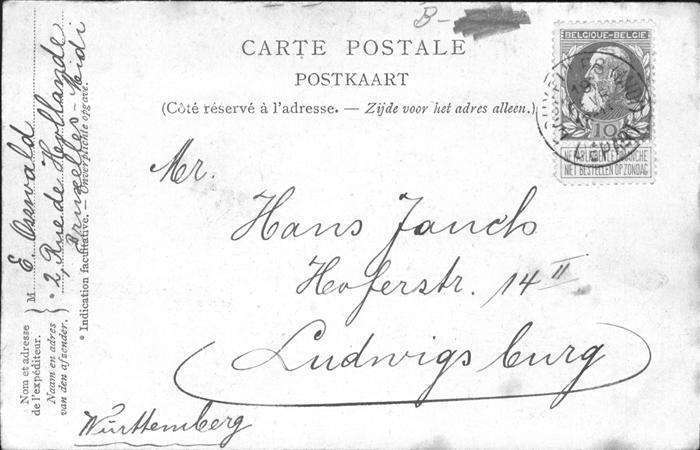 B-
CARTE POSTALE
POSTKAART
(Côté réservé à l'adresse. — Zijde voor het adres alleen.)
BELGIQUE-BELGIË
10
NE PAS LIVRER LE DIMANCHE
NIET BESTELLEN OP ZONDAG
Mr.
Hans Jauch
Hoferstr. 14 II
Ludwigsburg
Württemberg
Nom et adresse
de l'expéditeur.
Naam en adres
van den afzender.
M E. Osswald
° 2, Rue de Hollande
Bruxelles-Midi
° Indication facultative. — Onverplichte opgave.